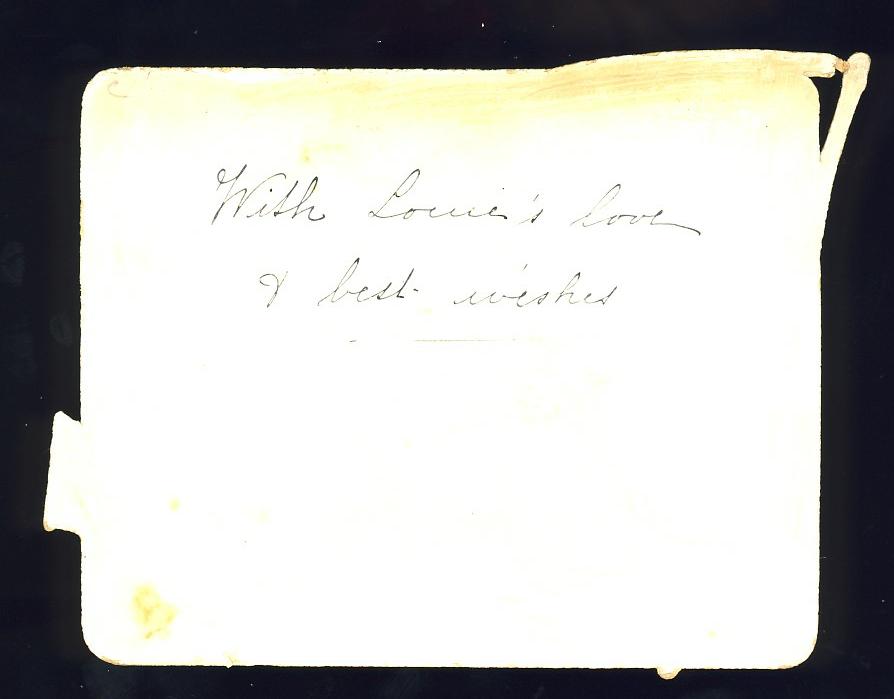 With Louie's love
& best wishes